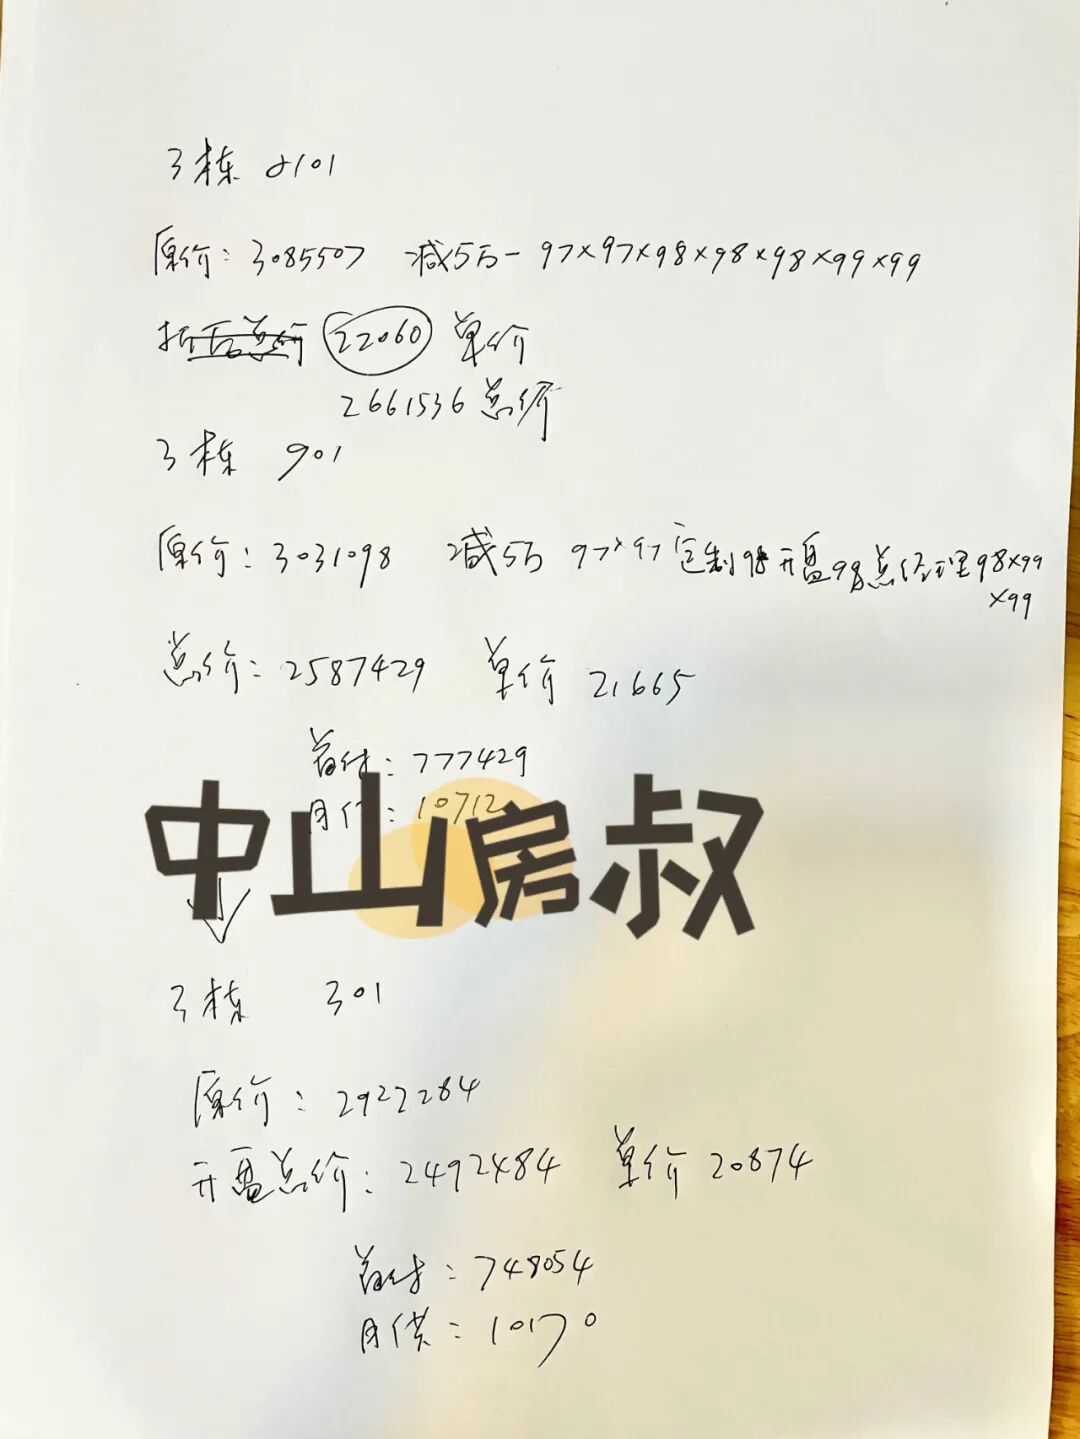 3栋 2101
原价：3085507 减5万-97×97×98×98×98×99×99
折后总价 22060 单价
2661536总价
3栋 901
原价：3031098 减5万 97×97定制98开盘98总经理98×99
×99
总价：2587429 单价 21665
首付：777429
月供：10712
中山房叔
3栋 301
原价：2922284
开盘总价：2492484 单价20874
首付：748054
月供：10170